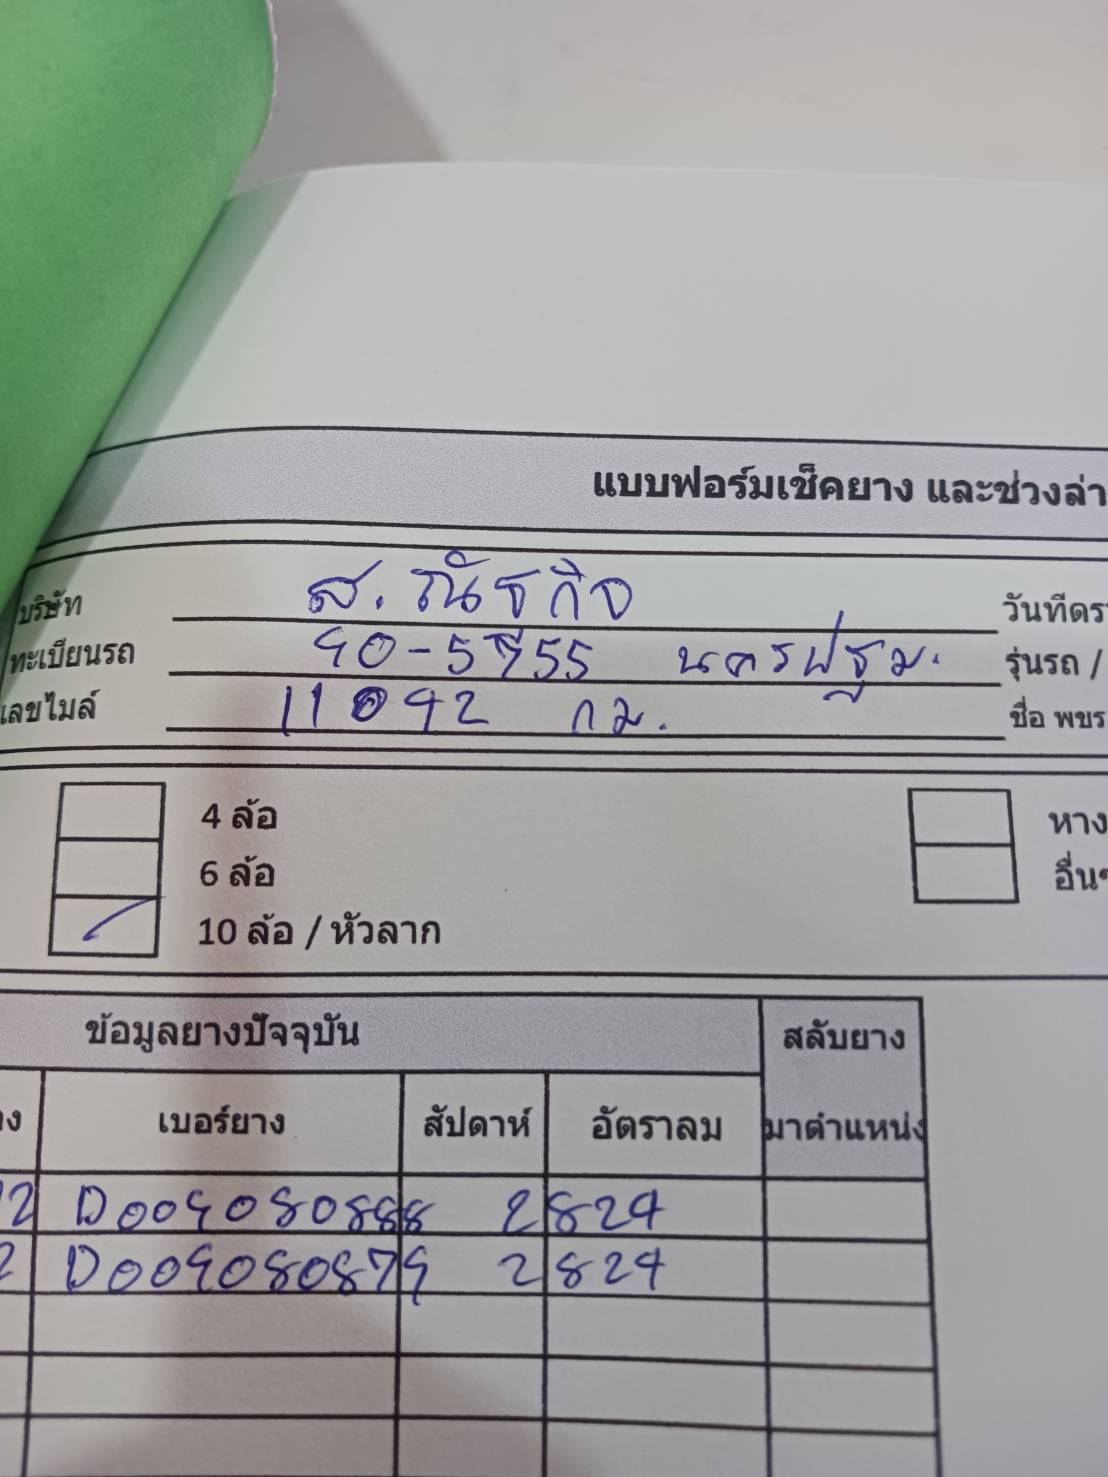 แบบฟอร์มเช็คยาง และช่วงล่า
บริษัท ส. ณัฐกิจ วันที่ตร
ทะเบียนรถ 90-5755 นครปฐม. รุ่นรถ /
เลขไมล์ 11092 กม. ชื่อ พขร
4 ล้อ หาง
6 ล้อ อื่นๆ
10 ล้อ / หัวลาก
ข้อมูลยางปัจจุบัน สลับยาง
เบอร์ยาง สัปดาห์ อัตราลม มาตำแหน่ง
12 D009080888 2824
2 D009080879 2824